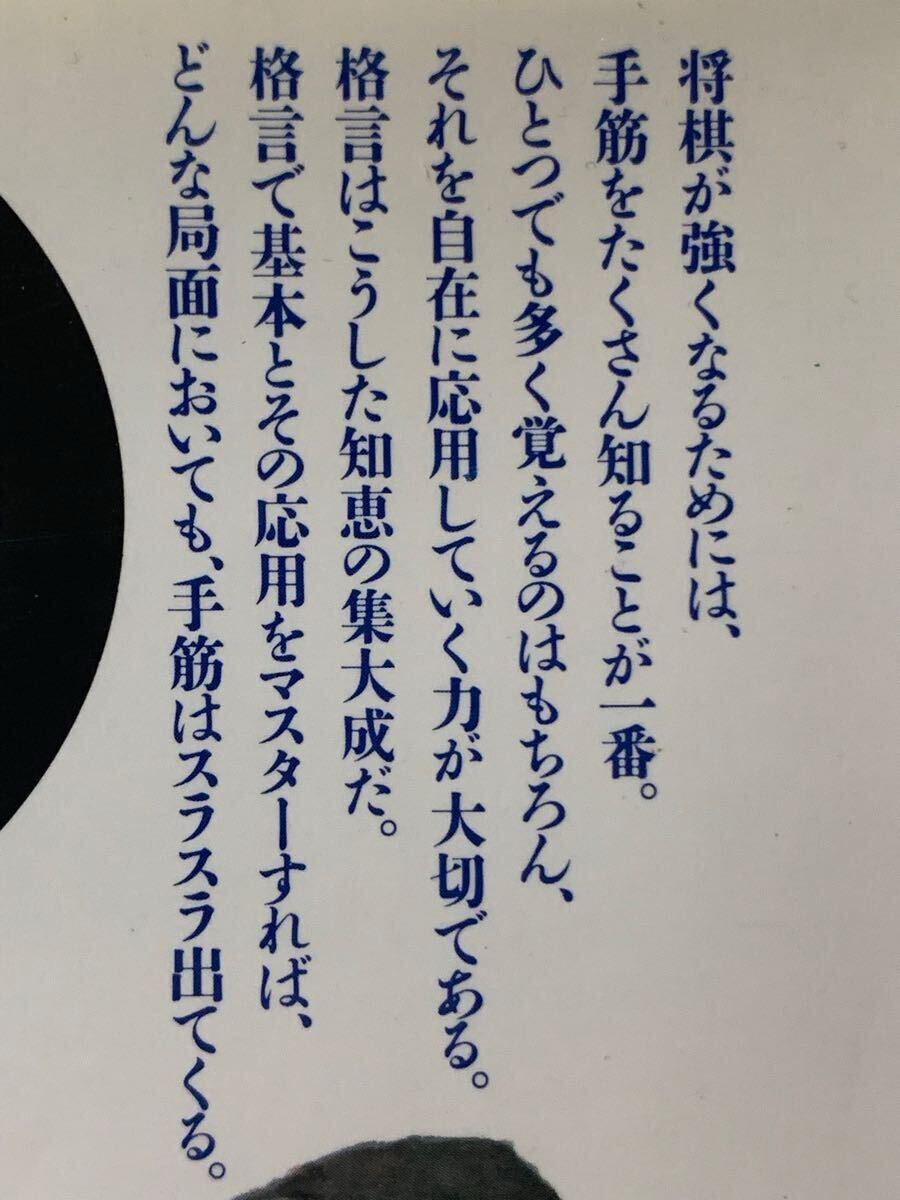 将棋が強くなるためには、
手筋をたくさん知ることが一番。
ひとつでも多く覚えるのはもちろん、
それを自在に応用していく力が大切である。
格言はこうした知恵の集大成だ。
格言で基本とその応用をマスターすれば、
どんな局面においても、手筋はスラスラ出てくる。